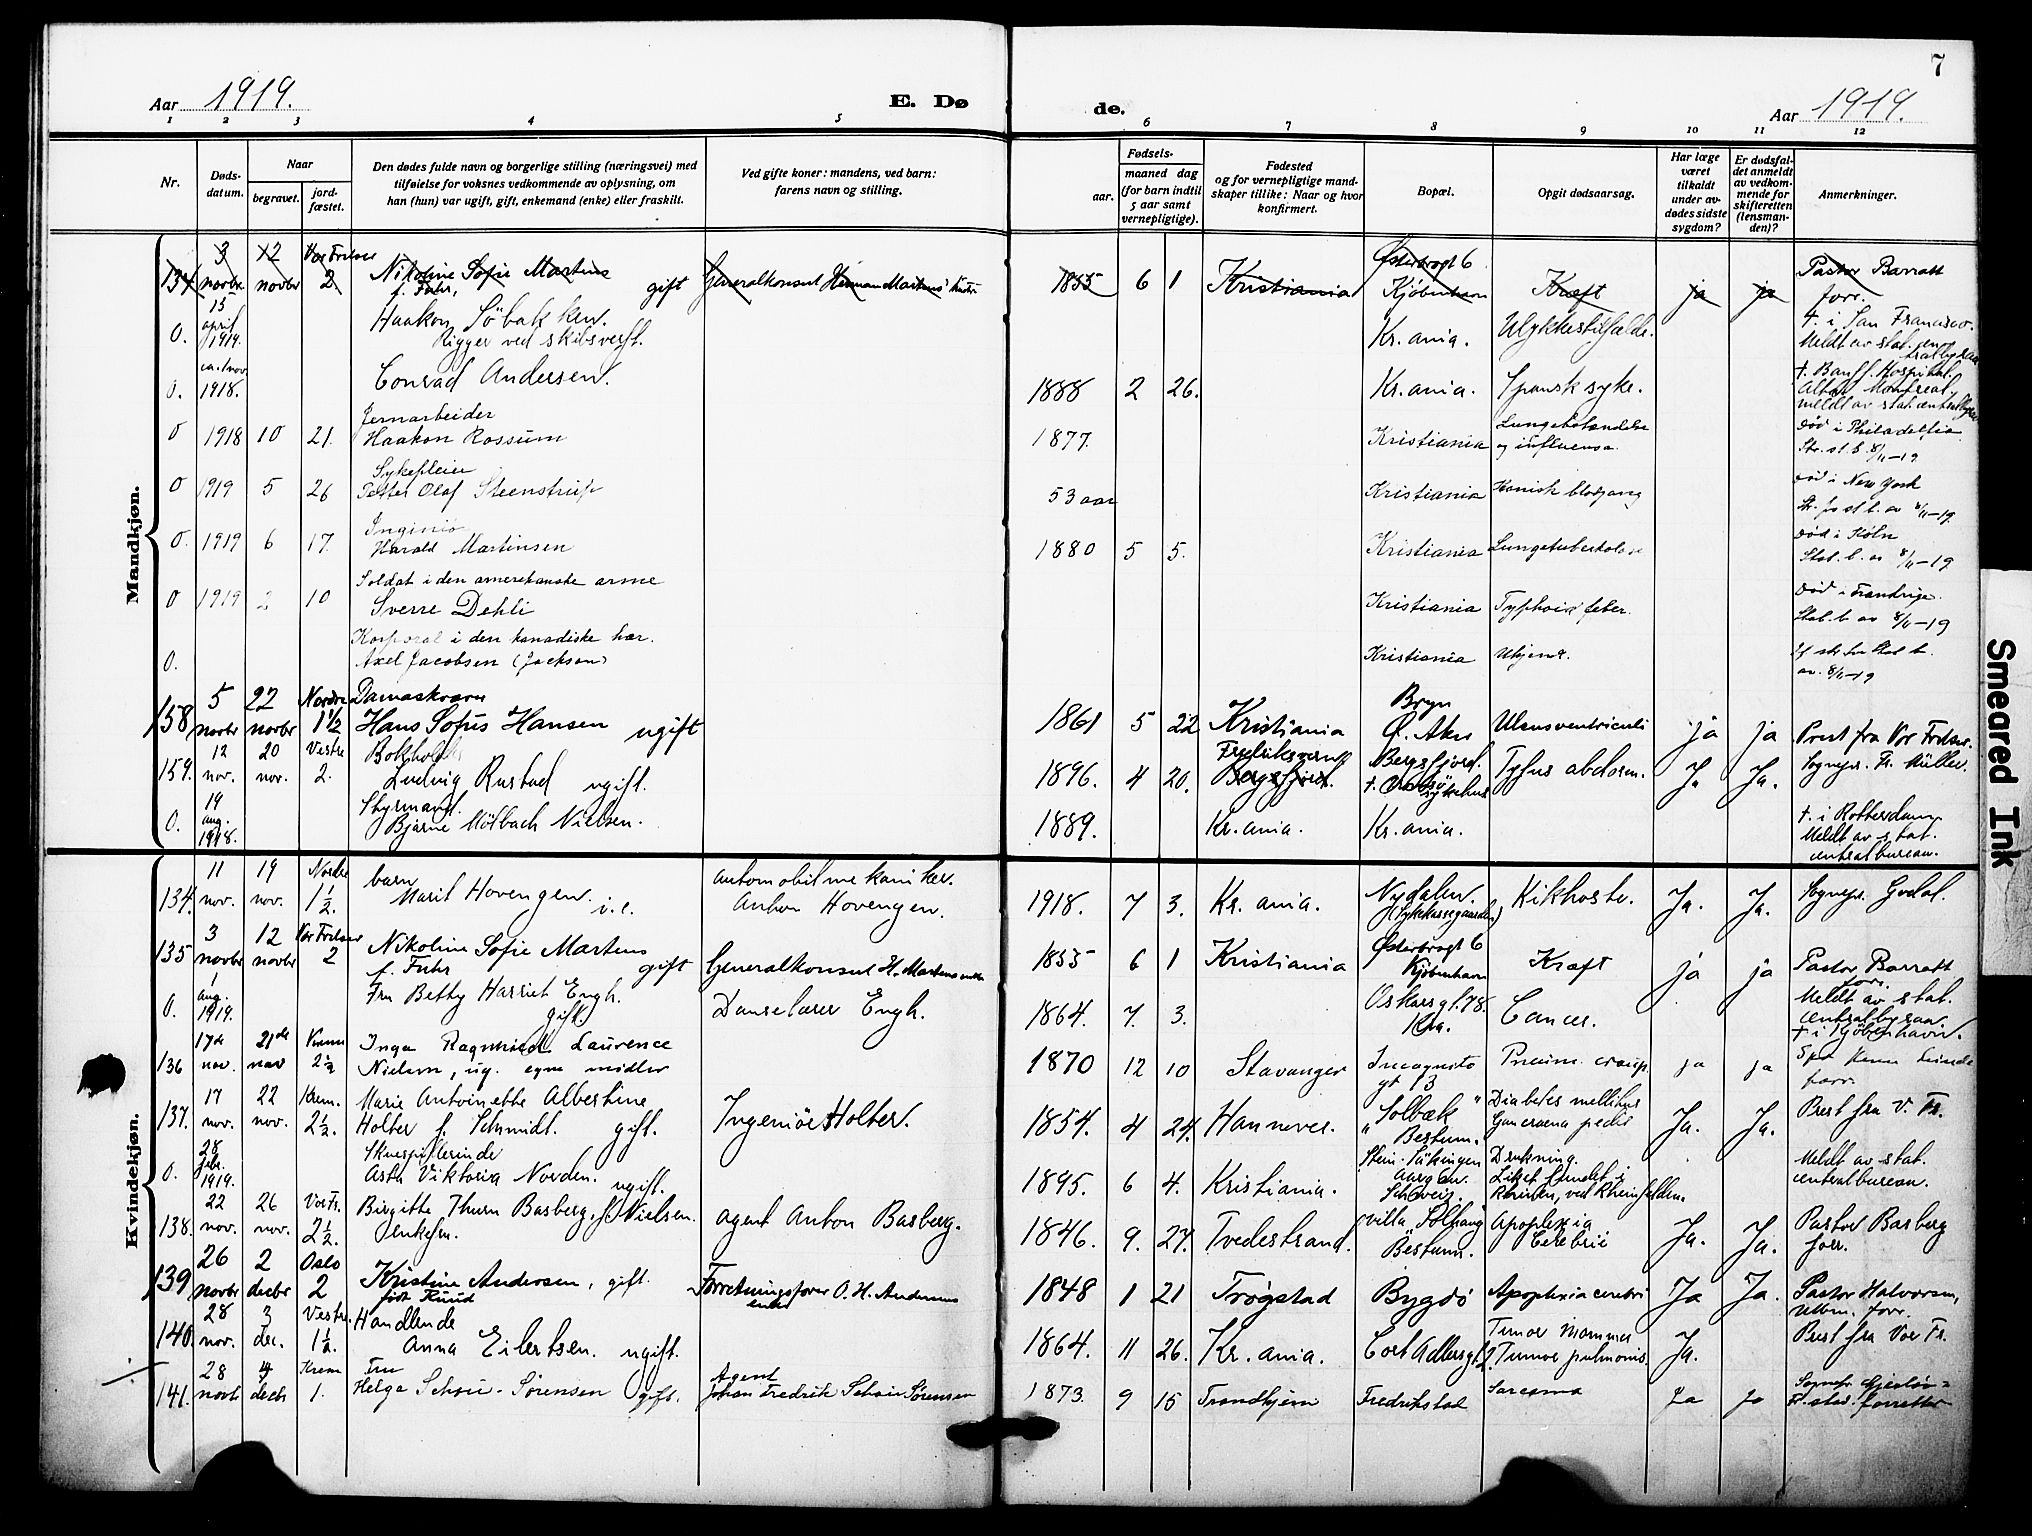 7
Aar 1919. E. Dø de. Aar 1919.
1 2 3 4 5 6 7 8 9 10 11 12
Nr. Døds-datum. Naar begravet. jord-fæstet. Den dødes fulde navn og borgerlige stilling (næringsvei) med tilføielse for voksnes vedkommende av oplysning, om han (hun) var ugift, gift, enkemand (enke) eller fraskilt. Ved gifte koner: mandens, ved barn: farens navn og stilling. Fødsels- aar. maaned dag (for barn indtil 5 aar samt vernepligtige). Fødested og for vernepligtige mand-skaper tillike: Naar og hvor konfirmert. Bopæl. Opgit dødsaarsag. Har læge været tilkaldt under av-dødes sidste sygdom? Er dødsfal-det anmeldt av vedkom-mende for skifteretten (lensman-den)? Anmerkninger.
Mandkjøn.
134 3 novbr 12 novbr Vor Frelser 2 Nikoline Sofie Martens f. Fuhr, gift Generalkonsul Herman Martens 1855 6 1 Kristiania Østerbrogt 6 Kjøbenhavn Kræft ja ja Pastor Barratt forr.
0. 15 april 1919. Haakon Søbakken. Rigger ved skibsverft. Kr.ania. Ulykkestilfælde. † i San Francisco. Meldt av stat. centralbyraa
0. ca. nov. 1918. Conrad Andersen. 1888 2 26. Kr.ania. Spansk syke. † Banff Hospital. Montreal, meldt av stat. centralbyraa
0 1918 10 21. Jernarbeider Haakon Rossum 1877. Kristiania Lungebetændelse og influensa. død i Philadelfia. Str. st. b. 8/11-19
0 1919 5 26 Sykepleier Petter Olaf Steenstrup 53 aar Kristiania Kronisk blodgang død i New York 8/11-19
0. 1919 6 17. Inginiø Harald Martinsen 1880 5 5. Kristiania Lungetuberkolose død i Køln Stat. b. av 8/11-19
0 1919 2 10 Soldat i den amerekanske arme Sverre Dehli Kristiania Typhoid feber. død i Frankrige. Stat. b. av 8/11-19
0. Korporal i den kanadiske hær. Axel Jacobsen (Jackson) Kristiania Ukjent. av. 8/11-19
158 5 novbr 22 novbr Nordre 1½ Damaskvæver Hans Sofus Hansen ugift 1861 5 22 Kristiania Bryn Ø. Aker Ulcus ventriculi ja ja Prest fra Vor Frelser.
159. 12 nov. 20 nov. Vestre 2. Bokholder Ludvig Rustad ugift. 1896. 4 20. Fredriksværn Bergsfjord. Bergsfjord. † sykehus Tyfus abdom. Ja Ja. Sognepr. Fr. Müller.
0. 19 aug. 1918. Styrmand. Bjarne Mölbach Nielsen. 1889. Kr.ania. Kr.ania. † i Rotterdam. Meldt av stat. centralbureau.
Kvindekjøn.
134. 11 nov. 19 nov. Nordre 1½. barn Marit Hovengen. i.e. automobilmekaniker. Anton Hovengen. 1918. 7 3. Kr.ania. Nydalen. (Sykekassegaarden) Kikhoste. Ja. Ja. Sognepr. Godal.
135 3 novbr 12 novbr Vor Frelser 2 Nikoline Sofie Martens f. Fuhr gift Generalkonsul H. Martens 1855 6 1 Kristiania Østerbrogt 6 Kjøbenhavn Kræft ja ja Pastor Barratt forr.
0. 1 aug. 1919. Fru Betty Harriet Engh. gift. Danselærer Engh. 1864. 7. 3. Oskarsgt. 78. Kra. Cancer. Meldt av stat. centralbyraa † i Kjøbenhavn.
136 17de nov. 21de nov Krem 2½ Inga Ragnhild Laurence Nielsen, ug. egne midler 1870 12 10 Stavanger Incognito gt 13 Pneum. croup. ja ja
137. 17 nov. 22 nov. Krem. 2½. Marie Antoinette Albertine Holter f. Schmidt. gift. Ingeniør Holter. 1854. 4 24. Hannover. "Solbæk" Bestum. Diabetes mellitus Gancraena pedis Ja. Ja. Prest fra V. Fr.
0. 28 febr. 1919. Skuespillerinde Asta Viktoria Norden. ugift. 1895. 6 4. Kristiania. Stein-Säkingen Aargau. Schweiz. Drukning. Liket fundet i Rhinen, ved Rheinfelden. Meldt av stat. centralbureau.
138. 22 nov. 26 nov. Vor Fr. 2½. Birgitte Thurn Basberg, f. Nielsen. enkefru. agent Anton Basberg. 1846. 9. 27. Tvedestrand. villa "Solhaug" Bestum. Apoplexia Cerebrii Ja. Ja. Pastor Basberg forr.
139 26 novbr 2 decbr Oslo 2 Kristine Andersen, gift. født Ruud Forretningsfører O. H. Andersens enke 1848 1 21 Trøgstad Bygdö Apoplexia cerebri Ja Ja. Pastor Halvorsen, forr.
140. 28 nov. 3 dec. Vestre. 1½. Handlende Anna Eilertsen. ugift. 1864. 11 26. Kr.ania. Cort Adlersgt. 2. Tumor Mammae Tumor pulmonis. Ja. Prest fra Vor Fr.
141. 28 novbr 4 decbr Krem 1. Frue Helga Schou-Sørensen gift. Agent Johan Fredrik Schou Sørensen 1873. 9 15 Trondhjem Fredrikstad Sarcoma Ja Ja Fr.stad. forretter
Smeared Ink